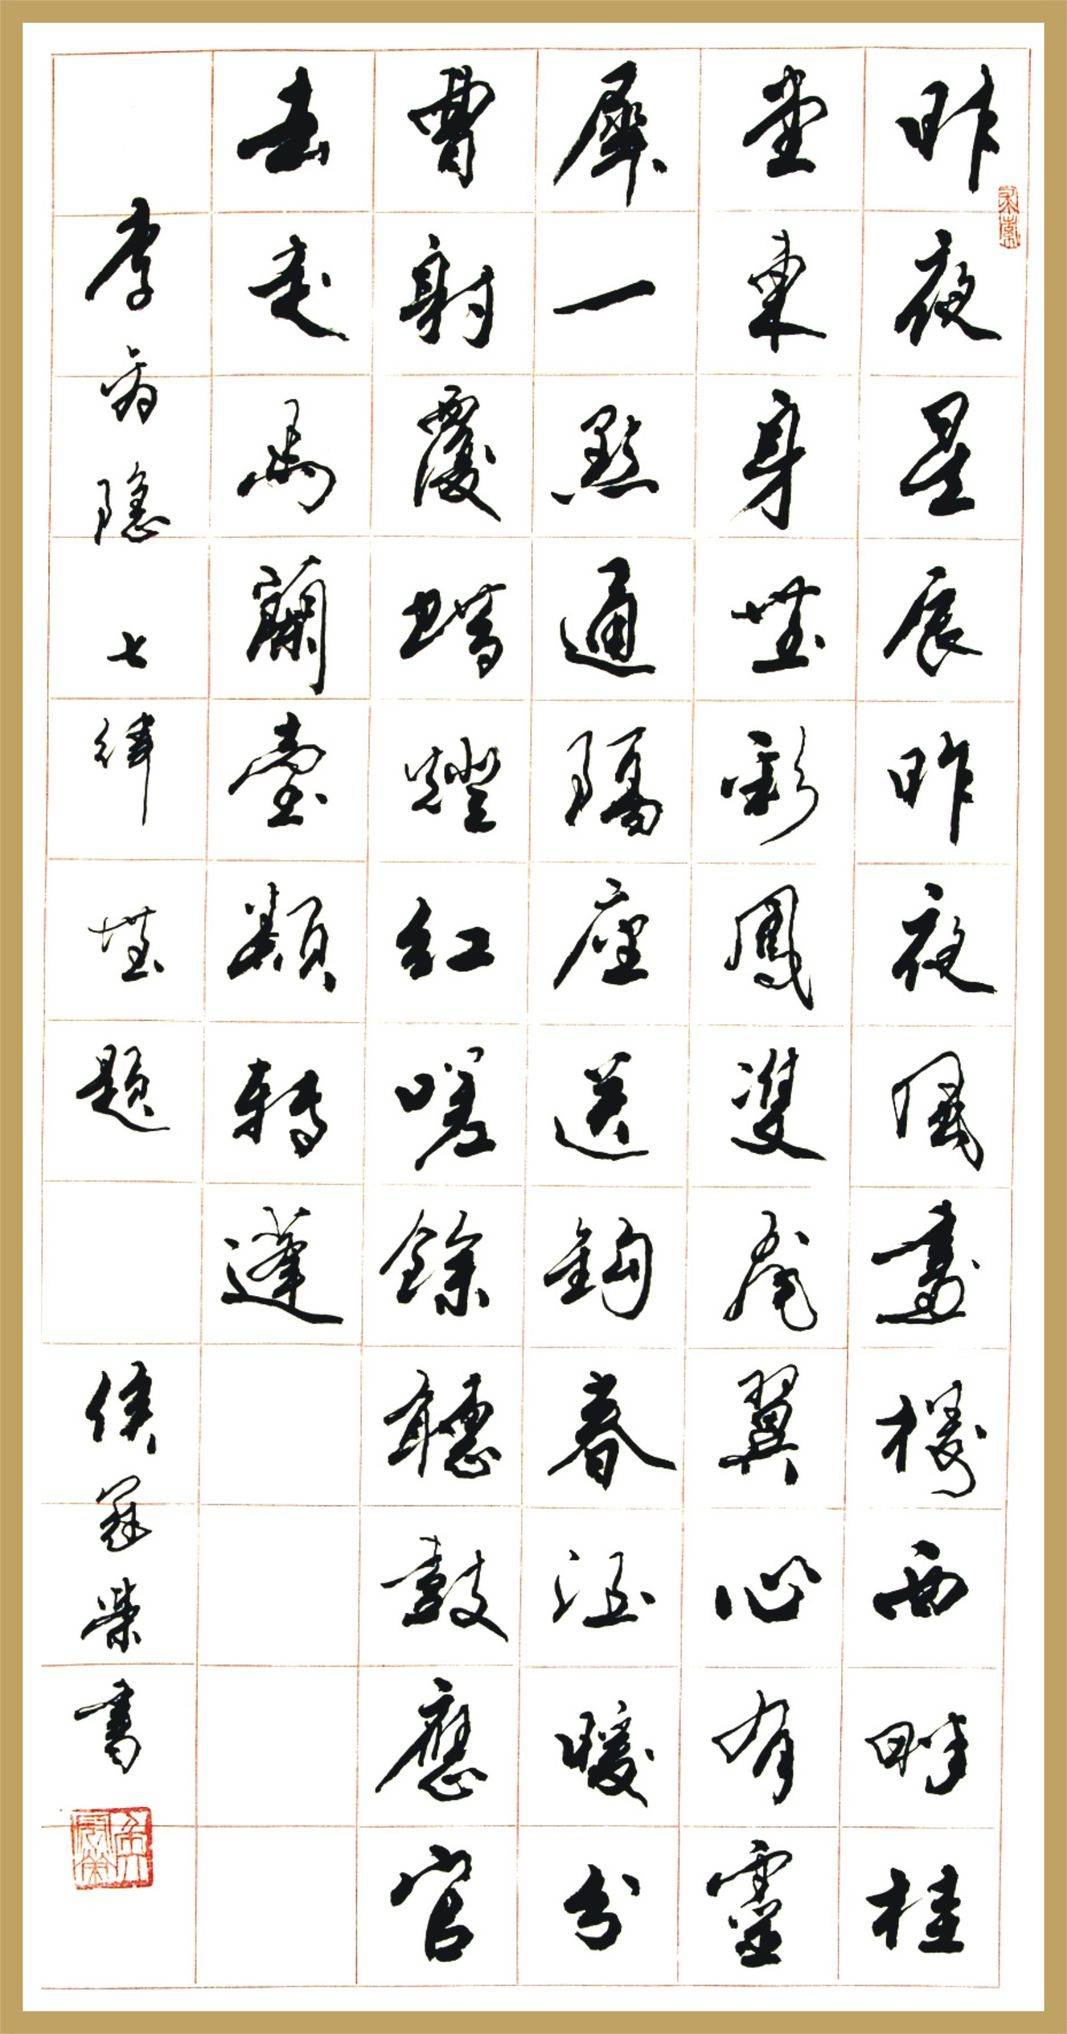 昨夜星辰昨夜風畫樓西畔桂
堂東身無彩鳳雙飛翼心有靈
犀一點通隔座送鉤春酒暖分
曹射覆蠟燈紅嗟餘聽鼓應官
去走馬蘭臺類轉蓬
李商隱七律無題 侯冠榮書